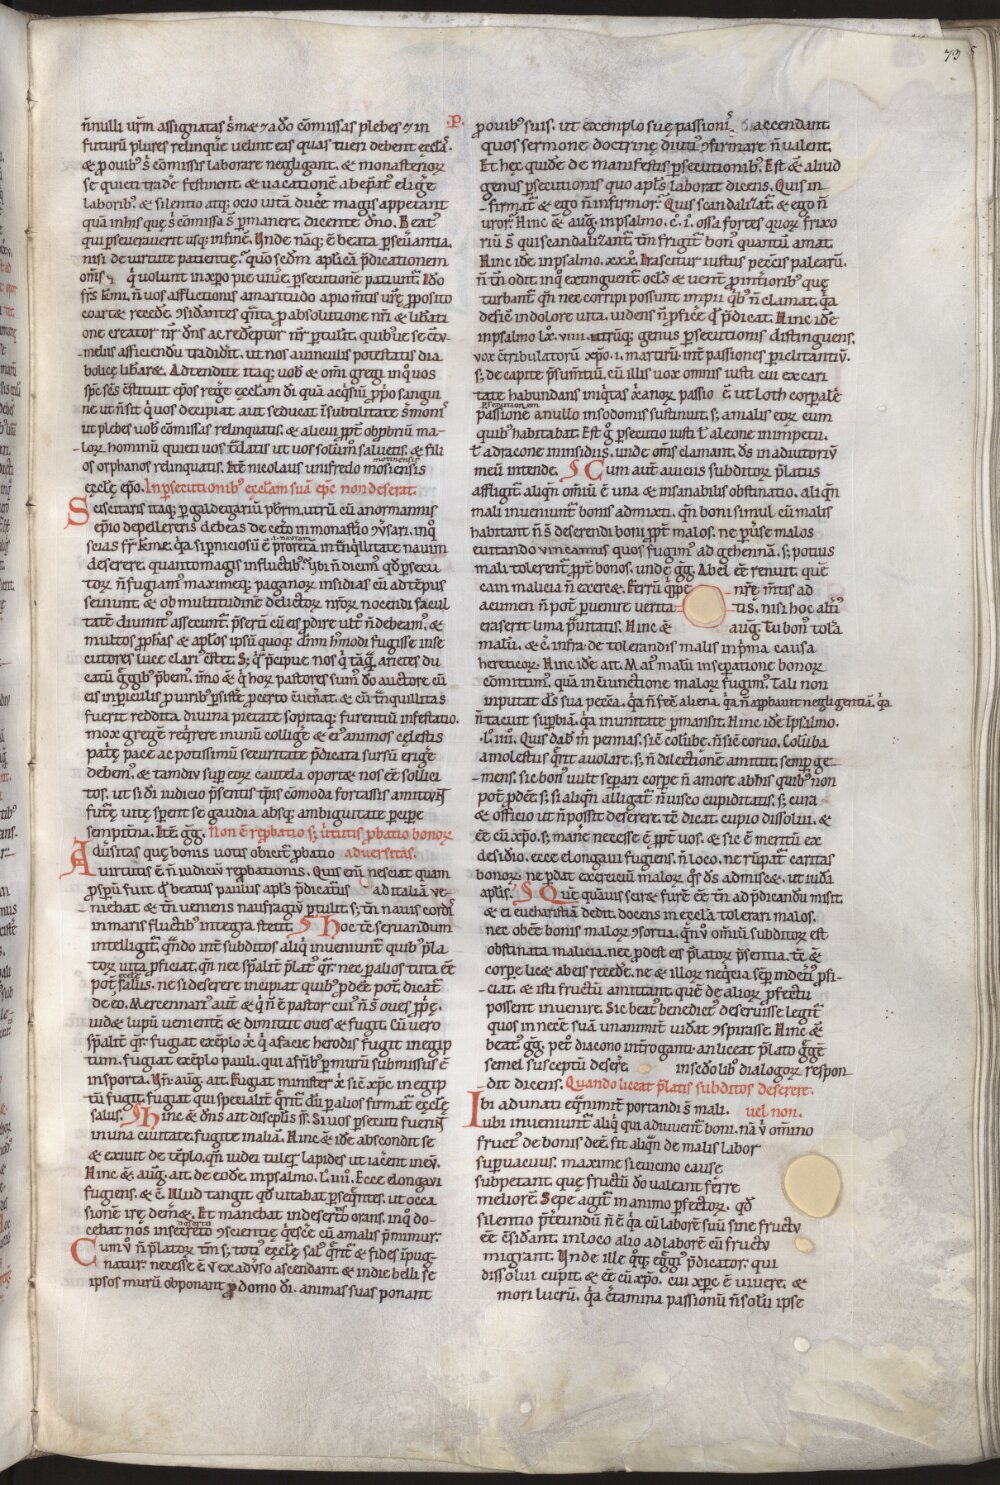 73
n̄nulli ur̄m assignatas s̄mæ ⁊ ado cōmissas plebes ⁊ in
futurū plures relinquę uelint eas quas tueri debent ęccl̄as.
& p ouibꝰ s̄ cōmissis laborare negligant. & monasterioꝝ
se quieti tradr̄e festinent & uacationē ab ep̄atu eliḡe
laboribꝰ & silentio atqꝫ ocio uitā ducē magis appetant
quā in his quę s̄ cōmissa s̄ p̄manere. dicente dn̄o. Beatꝰ
qui pseuerauerit usqꝫ in finē. Vnde nāqꝫ ē beata pseuerantia.
nisi de uirtute patientię. quo scdm̄ apl̄icā p̄dicationem
om̄s q̇ uolunt in xp̄o pie uiuē. psecutionē patiunt̄. Ido
fr̄s km̄i. n̄ uos afflictionis amaritudo a pio m̄tis ur̄ę pposito
coartæ recedē. ꝯsidantes qn̄ta p absolutione nr̄i & libati
one creator nr̄ dn̄s ac redēptor nr̄ ptulit. quibꝰ ue se cōtu-
melus afficiendū tradidit. ut nos a uinculis potestatis dia
bolicę liƀaræ. Adtendite itaqꝫ uoƀ & om̄i gregi. in quo uos
sp̄c sc̄s ēstituit ep̄os reḡe ęccl̄am dī quā acq̇siuit pprio sangui
ne ut n̄ sit q̇ uos decipiat aut seducat ī subtilitate s̄monis
ut plebes uoƀ cōmissas relinquatis. & alicui ppt̄ obpbriū ma-
loꝝ hominū quieti uos t̄datis ut uos solum̄ saluetis. & fili
os orphanos relinquatis. Itē nicolaus unifredo mosiensis
morinensis
ęccl̄ę epo. In psecutionibꝰ ęccl̄am suā epc̄ non deserat.
Sciscitaris itaqꝫ p galdegariū pb̄rm. utrū cū a normannis
ep̄io depellereris debeas de cet̄o in monast̄io ꝯuersari. inqꝫ
scias fr̄ km̄e. q̇a si pniciosū ē proreta in tn̄q̇llitate nauim
.i. nautam
deserere. quanto magis in fluctibꝰ. Vbi n̄ dicim̄ qd̄ psecu
toꝝ n̄ fugiam̄ maximeqꝫ paganoꝝ insidias cū ad tēpus
seuiunt. & ob multitudinē delictoꝝ nr̄oꝝ nocendi facul
tatē diuinit̄ assecunt̄. p̄serū cū eis pdire ult̄ n̄ debeam̄. &
multos pphas & apl̄os ipsū quoqꝫ dn̄m h̄modi fugisse inse
cutores luce clariꝰ ēstet. S; q̇ p̄cipue nos q̇ tāqꝫ arietes du
catū ḡgibꝰ p̄bem. imo & q̇ hoꝝ pastores sum̄ do auctore cū
eis in piculis p uiribꝰ p̄sist̄e p certo ēuenat. & cū tn̄quillitas
fuerit reddita diuina pietate sopitaqꝫ furentiū infestatio.
mox gregē req̇rere munū colliḡe & eiꝰ animos cęlestis
pat̄ę pace ac potissimū securitate p̄dicata sursū eriḡe
debem̄. & tamdiu sup eoꝝ cautela oportæ nos eē sollici
tos. ut si dī iudicio p̄sentis tp̄is cōmoda fortassis amitt̄
fut̄ę uitę sperent se gaudia absqꝫ ambiguitate pcipe
sempit̄na. Itē ḡg. Non ē reƀbatio s; ūtutis pbatio bonoꝝ
Aduersitas quę bonis uotis obicit̄ pbatio adversitas.
uirtutis ē n̄ iudiciū repbationis. Quis enī nesciat quam
psp̄um fuit q̇ beatus paulus apl̄s p̄dicatūs ad italiā ue-
niebat & tn̄ ueniens naufragiū ptulit. s; tn̄ nauis cordī
in maris fluctibꝰ integra stetit. Hoc eē seruandum
intelligit̄. qn̄do int̄ subditos aliq̇ inueniunt̄ quibꝰ p̄la
toꝝ uita pficiat. qn̄ nec sp̄alit̄ p̄latꝰ q̇r. nec p alios tuta eē
pot̄ salus. ne si deserere incipiat quibꝰ pdeē pot̄ dicat̄
de eo. Mercennariꝰ aut̄ & q̇ n̄ ē pastor cuiꝰ n̄ s̄ oues ppē.
uidæ lupū uenientē & dimittit oues & fugit. Cū uero
sp̄alit̄ q̇r. fugiat exēplo xp̄c q̇ a facie herodis fugit in egip
tum. fugiat exēplo pauli. qui a fr̄ibꝰ p murū submissus ē
in sporta. Vn̄. aug. ait. Fugiat minister xp̄ sic̄ xp̄c in egip
tū fugit. fugiat qui specialit̄ q̇rit̄. dū p alios firmat̄ ęccl̄ę
salus. Hinc & dn̄s ait discip̄lis s̄. Si uos psecuti fuerit
in una ciuitate. fugite in aliā. Hinc & idē abscondit se
& exiuit de tēplo. qn̄ iudei tuler̄ lapides ut iacerent in eū.
Hinc & aug. ait de eodē. in psalmo. l.iiii. Ecce elongaui
fugiens. & c̄. Illud tangit qd̄ uitabat pseq̄ntes. ut occa
sionē irę demæ. Et manebat in deserto orans. inqꝫ do-
cebat nos in secreto ꝯscientię q̇escē cū a malis p̄mimur.
Cum ū n̄ p̄latoꝝ tm̄ s; totꝰ ęccl̄ę salꝰ q̇rit̄ & fides īpug-
natur. necesse ē ū ex aduso ascendant & in die belli se
ipsos murū obponant p domo dī. animas suas ponant
p ouibꝰ suis. ut exemplo suę passionis accendant.
quos sermone doctrinę diutiꝰ ꝯfirmare n̄ ualent.
Et hęc quidē de manifestis psecutionibꝰ. Est & aliud
genus psecutionis quo apl̄s laborat dicens. Quis in-
firmat̄ & ego n̄ infirmor. Quis scandalizat̄ & ego n̄
uror. Hinc & aug. in psalmo. c̄.i. ossa fortes quoꝝ frixo
riū s̄ qui scandalizant̄. tm̄ frigit̄ bonꝰ quantū amat.
Hinc idē in psalmo. xxx. Irascitur iustus peccatis palearū.
n̄ tn̄ odit. in q̇ extinguent̄ oclos & uentr̄ p int̄ioribꝰ quę
turbant̄ qn̄ nec corripi possunt impii q̇bꝰ n̄ clamat. q̇a
deficit in dolore uita. uidens n̄ pficē q̇ p̄dicat. Hinc idē
in psalmo lx.viiii. utrūqꝫ genus psecutionis distinguens.
uox c̄tribulatorū xpo .i. martirū int̄ passiones piclitantiū.
s; de capite p̄sumtiū. cū illis uox omnis iusti cui ex cari
tate habundans iniq̇tas xianoꝝ passio ē ut loth corpalē
psecutionem
passionē a nullo in sodomis sustinuit. s; a malis eoꝝ cum
quibꝰ habitabat. Est q̇ psecutio iusti l̄ a leone in impetu.
l̄ a dracone in insidiis. unde om̄s clamant. dś in adiutoriū
meū intende. Cum aut̄ a uiciis subditoꝝ p̄latus
affligit̄. aliqn̄ omīū ē una & insanabilis obstinatio. aliqn̄
mali inueniunt̄ bonis admixti. qn̄ boni simul cū malis
habitant n̄ s̄ deserendi boni ppt̄ malos. ne puise malos
euitando uincamus quos fugim̄ ad gehennā. s; potius
mali tolerent̄ ppt̄ bonos. unde ḡg. Abel eē renuit. quē
cain malicia n̄ exercæ. Ferrū q̇ppe nr̄ę m̄tis ad
acumen n̄ pot̄ puenire ueritatis. nisi hoc alt̄iꝰ
eraserit lima p̄uitatis. Hinc & aug. Tu bonꝰ tola
malū. & c̄. infra. de tolerandis malis in p̄ma causa
hereticoꝝ. Hinc idē ait. Maiꝰ malū in sepatione bonoꝝ
cōmitim̄. quā in ēiunctione maloꝝ fugim̄. Tali non
imputat dś sua peccata. q̇a n̄ fec̄. aliena. q̇a n̄ approbauit negligentiā. q̇a
n̄ tacuit superbiā. q̇a in unitate p̄mansit. Hinc idē ī psalmo.
l̄.iiii. Quis dabit m̄ pennas. sic̄ colūbę. n̄ sic̄ coruo. Colūba
a molestiis q̇rit auolare. s; n̄ dilectionē amittit. semp ge-
mens. sic bonꝰ uult separi corpe n̄ amore ab his quibꝰ non
pot̄ pdeē. s; si aliqn̄ alligat̄ n̄ uisco cupiditatis. s; cura
& officio ut n̄ possit deserere. tē dicat. cupio dissolui. &
eē cū xpo. s; manē necesse ē ppt̄ uos. & sic ē meritū ex
desidio. ecce elongaui fugiens. n̄ loco. ne rūpat̄ caritas
bonoꝝ. ne pdat exerciciū maloꝝ. q̇s ds admiscæ. ut iudā
apl̄is. Quē quāuis sciræ furē eē tn̄ ad p̄dicandū misit.
& ei eucharistiā dedit. docens in ęccl̄a tolerari malos.
nec obēē bonis maloꝝ ꝯsortia. qn̄ ū omīū subditoꝝ est
obstinata malicia. nec pdest eis p̄latoꝝ p̄sentia. tē &
corpe licæ ab eis recedē. ne & illoꝝ neq̇cia sēp indet̄iꝰ pfi-
ciat. & isti fructū amittant. quē de alioꝝ pfectu
possent inuenire. Sic beatꝰ benedictꝰ deseruisse legit̄
quos in necē suā unanimit̄ uidat ꝯspirasse. Hinc &
beatꝰ ḡg. pet̄ diacono int̄roganti. an liceat p̄lato ḡgē
semel susceptū deserē. in scdo libꝰ dialogoꝝ respon-
dit dicens. Quando liceat p̄latis subditos deserere.
Ibi adunati eq̇nimit̄ portandi s̄ mali. vel non.
ubi inueniunt̄ aliq̇ qui adiuuent̄ boni. nā ū om̄ino
fructꝰ de bonis deēt. fit aliqn̄ de malis labor
supuacuus. maxime si e uicino cause
subpetant. quę fructū do ualeant ferre
meliorē. Sepe agit̄ in animo pfectoꝝ. qd̄
silentio p̄tereundū n̄ ē. q̇a cū laborē suū sine fructu
eē ēsidant. in loco alio ad laborē cū fructu
migrant. Vnde ille q̇qꝫ egregiꝰ p̄dicator. qui
dissolui cupit & eē cū xpo. cui xpc ē uiuere. &
mori lucrū. q̇a c̄tamina passionū n̄ solū ipse